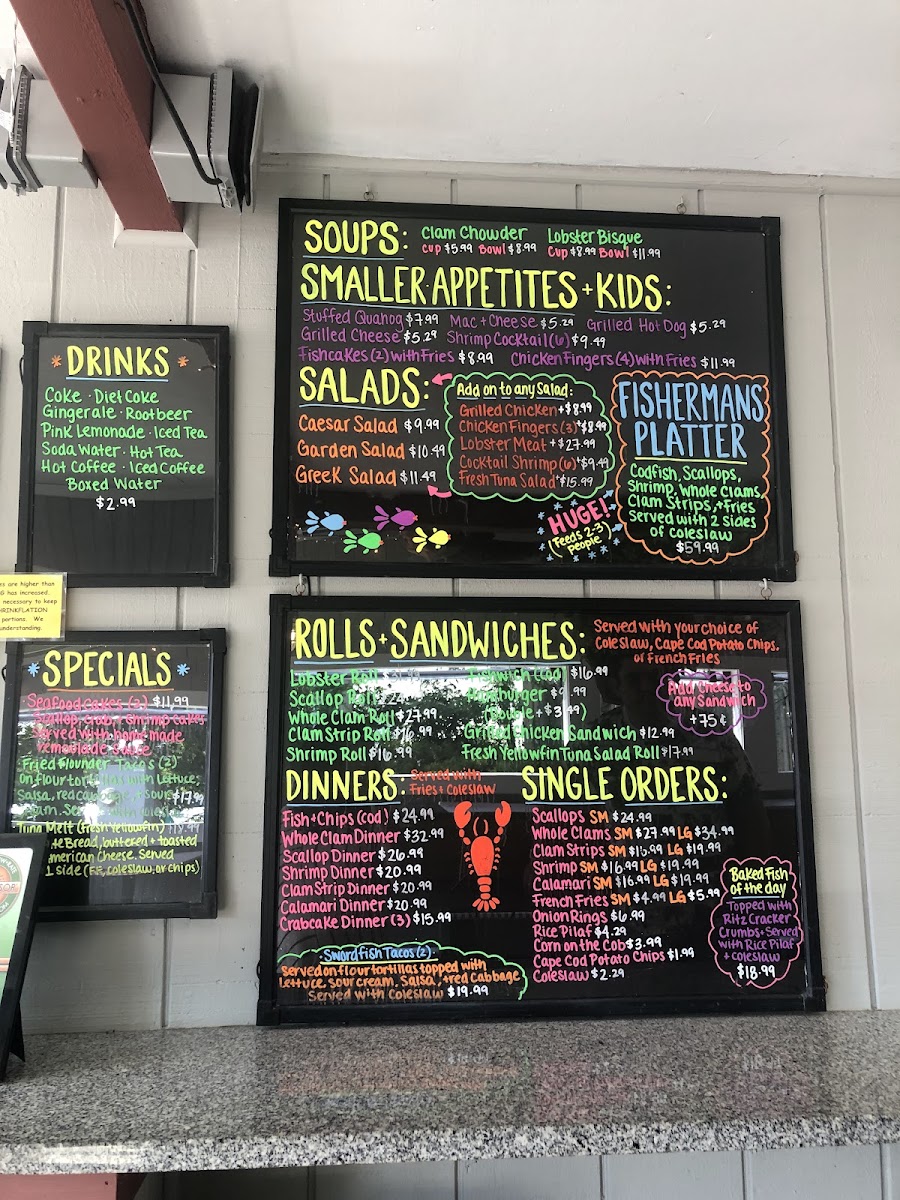 SOUPS: Clam Chowder Lobster Bisque
Cup $5.99 Bowl $8.99 Cup $8.99 Bowl $11.99
SMALLER APPETITES + KIDS:
Stuffed Quahog $7.99 Mac + Cheese $5.29 Grilled Hot Dog $5.29
Grilled Cheese $5.29 Shrimp Cocktail (6) $9.49
Fishcakes (2) with Fries $8.99 Chicken Fingers (4) with Fries $11.99
SALADS:
Caesar Salad $9.99
Garden Salad $10.49
Greek Salad $11.49
Add on to any Salad:
Grilled Chicken + $8.99
Chicken Fingers (3) + $8.49
Lobster Meat + $27.99
Cocktail Shrimp (6) + $9.49
Fresh Tuna Salad + $15.99
FISHERMANS
PLATTER
Codfish, Scallops,
Shrimp, Whole Clams,
Clam Strips, + Fries
Served with 2 sides
of coleslaw
$59.99
HUGE!
(Feeds 2-3
people)
* DRINKS *
Coke · Diet Coke
Gingerale · Rootbeer
Pink Lemonade · Iced Tea
Soda Water · Hot Tea
Hot Coffee · Iced Coffee
Boxed Water
$2.99
es are higher than
G has increased.
necessary to keep
HRINKFLATION
portions. We
understanding.
* SPECIALS *
Seafood cakes (3) $11.99
Scallop, Crab, + Shrimp cakes
Served with home made
remoulade sauce
Fried Flounder Tacos (2)
on flour tortillas with lettuce,
Salsa, red cabbage, + sour $17.99
Tuna Melt (fresh Yellowfin)
Bread, buttered + toasted
merican cheese. Served
1 side (FF, coleslaw, or chips)
ROLLS + SANDWICHES:
Served with your choice of
Coleslaw, Cape Cod Potato Chips,
or French Fries
Lobster Roll
Scallop Roll
Whole Clam Roll $27.99
Clam Strip Roll $16.99
Shrimp Roll $16.99
Fishwich (cod) $16.99
Hamburger
(Double +
Grilled Chicken Sandwich $12.99
Fresh Yellowfin Tuna Salad Roll $17.99
Add Cheese to
any Sandwich
+ 75¢
DINNERS: Served with
Fries + Coleslaw
Fish + Chips (cod) $24.99
Whole Clam Dinner $32.99
Scallop Dinner $26.99
Shrimp Dinner $20.99
Clam Strip Dinner $20.99
Calamari Dinner $20.99
Crabcake Dinner (3) $15.99
· Swordfish Tacos (2) ·
Served on flour tortillas topped with
lettuce, sour cream, Salsa, + red cabbage
Served with Coleslaw $19.99
SINGLE ORDERS:
Scallops SM $24.99
Whole Clams SM $27.99 LG $34.99
Clam Strips SM $16.99 LG $19.99
Shrimp SM $16.99 LG $19.99
Calamari SM $16.99 LG $19.99
French Fries SM $4.99 LG $5.99
Onion Rings $6.99
Rice Pilaf $4.29
Corn on the Cob $3.99
Cape Cod Potato Chips $1.99
Coleslaw $2.29
Baked Fish
of the day
Topped with
Ritz Cracker
Crumbs + Served
with Rice Pilaf
+ coleslaw
$18.99